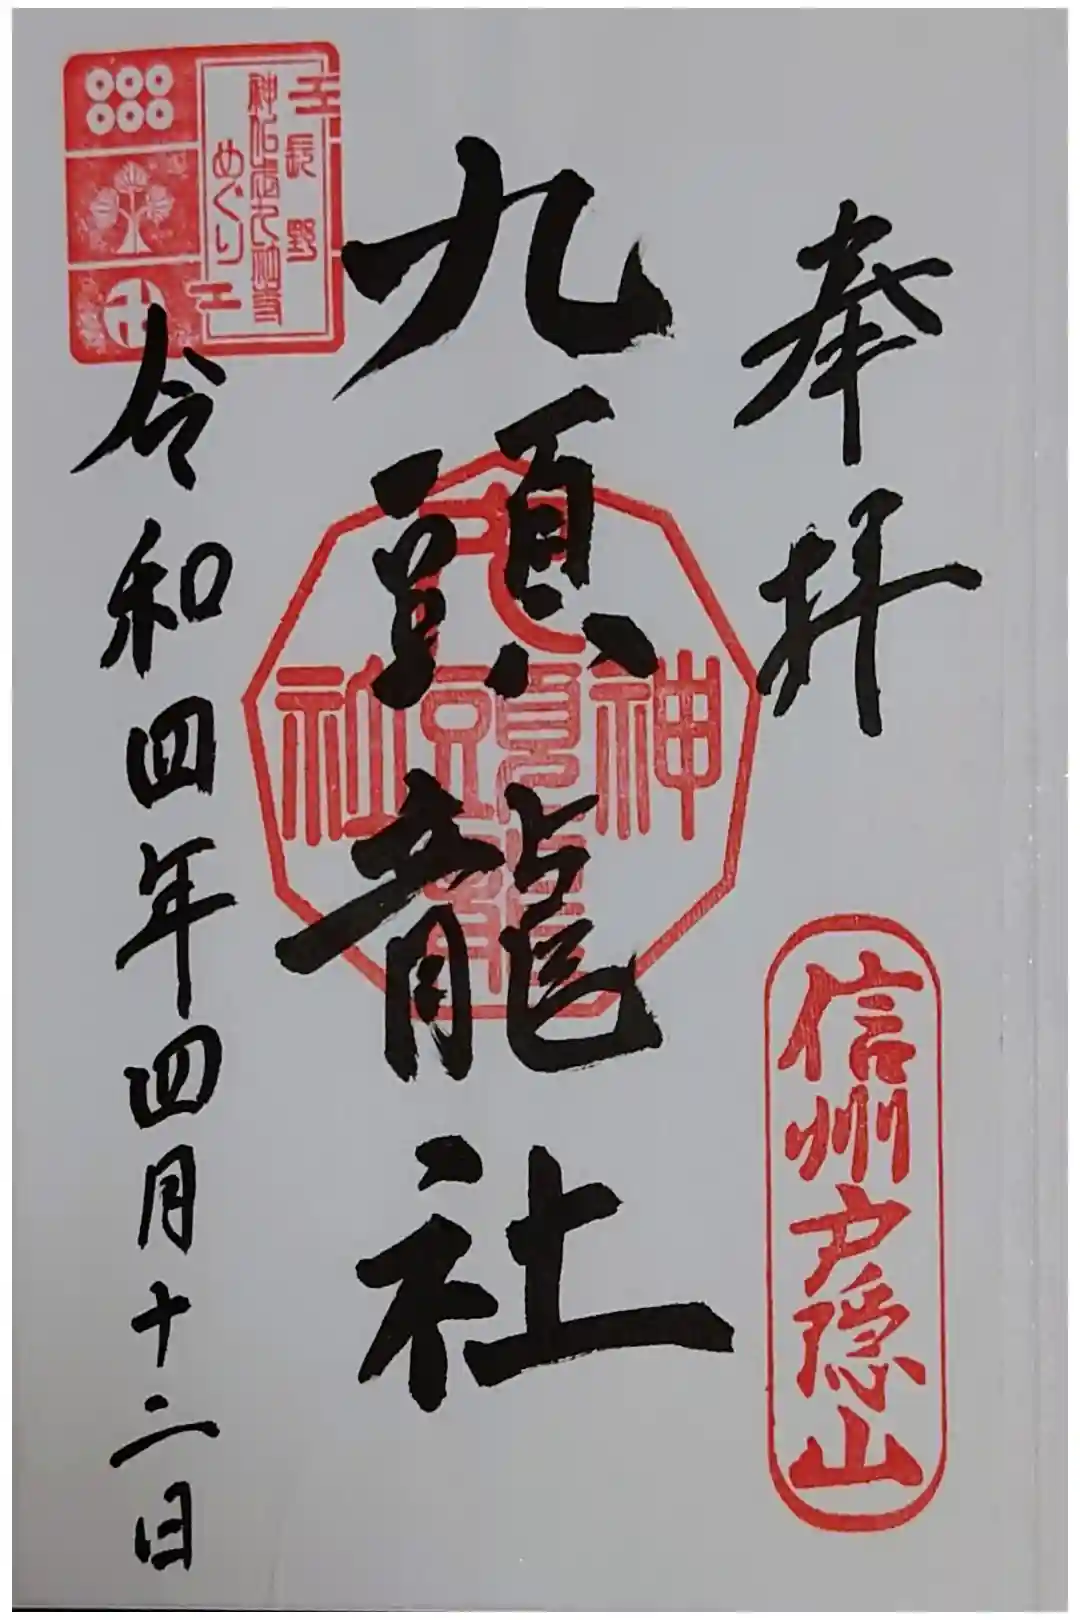 奉拝
信州戸隠山
九頭龍社
神
九頭龍
社
長野
めぐり
令和四年四月十二日